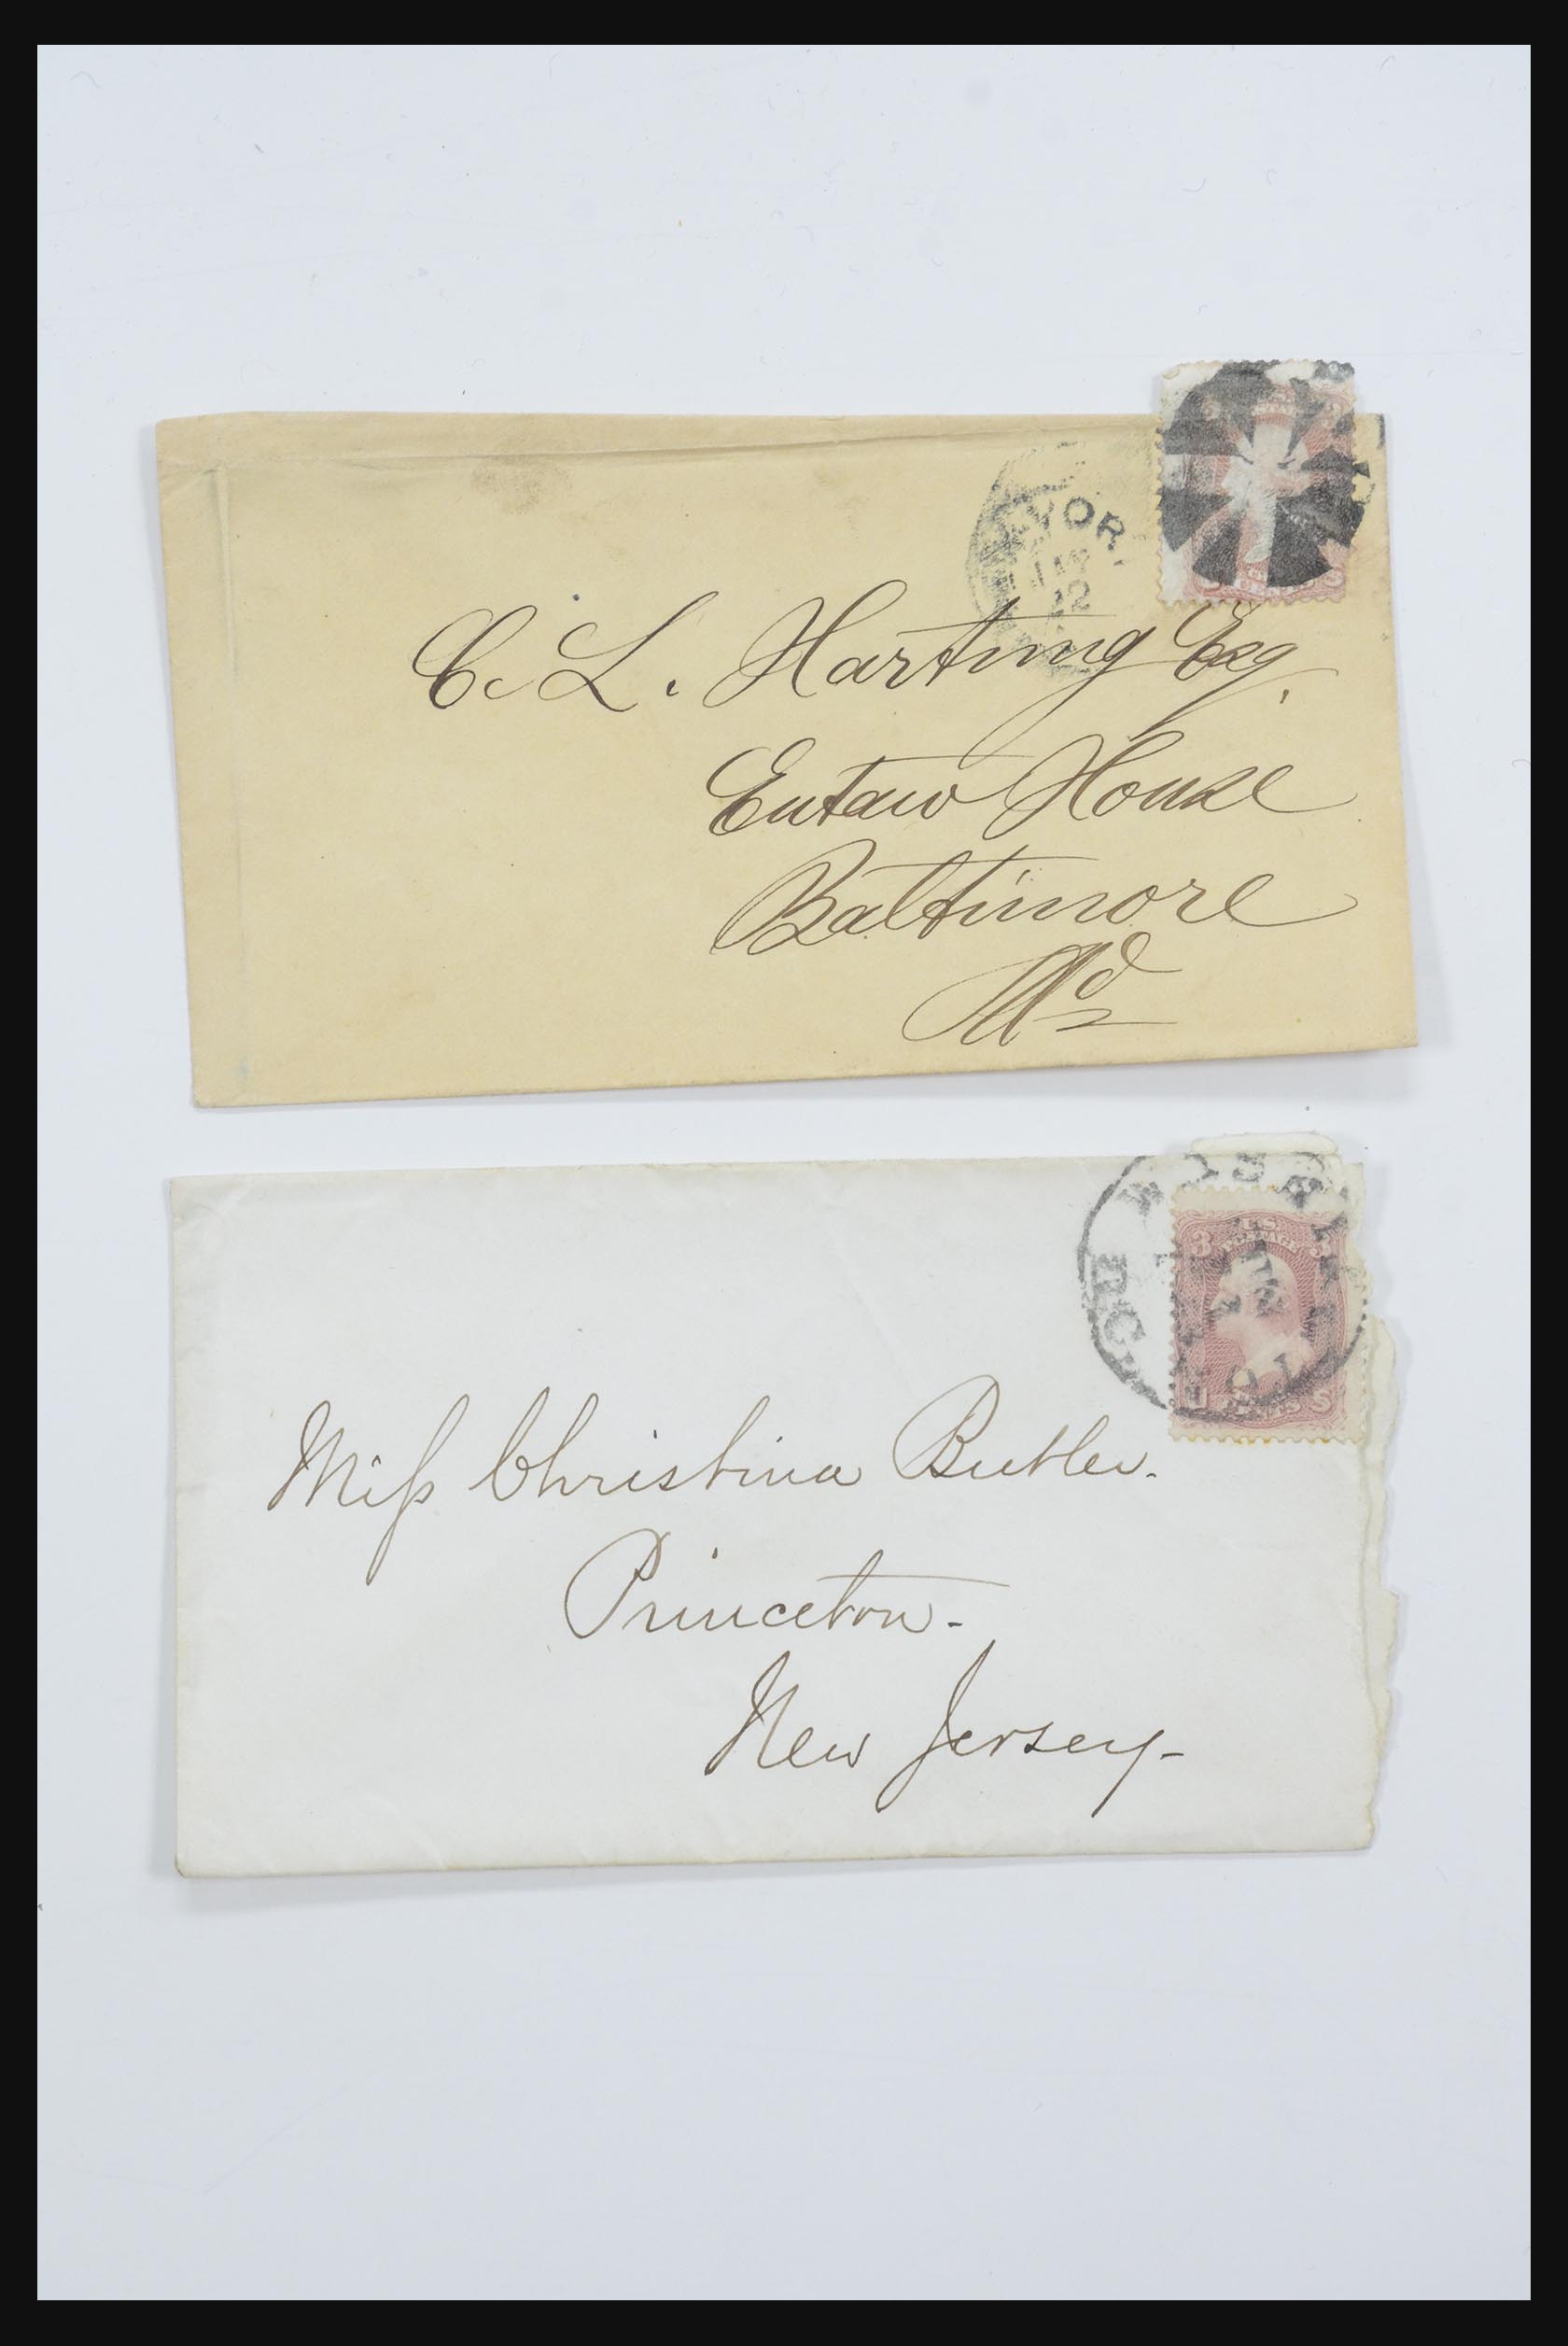 YOR
12
C. L. Hartung Esq.
Eutaw House
Baltimore
Md
3 U.S. 3
POSTAGE
U CENTS S
Miss Christina Butler.
Princeton-
New Jersey-